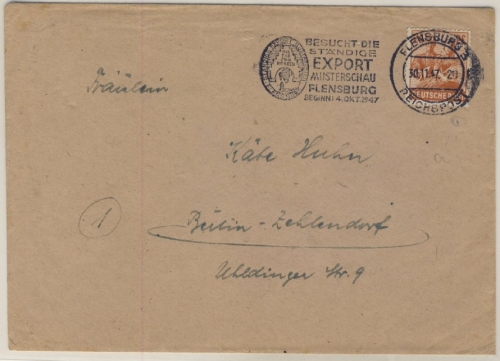 BESUCHT DIE
STÄNDIGE
EXPORT
MUSTERSCHAU
FLENSBURG
BEGINN: 4. OKT. 1947
FLENSBURG 3
30.11.47.-20
REICHSPOST
DEUTSCHE P
Fräulein
Käte Huhn
Berlin-Zehlendorf
Uhldinger Str. 9
1